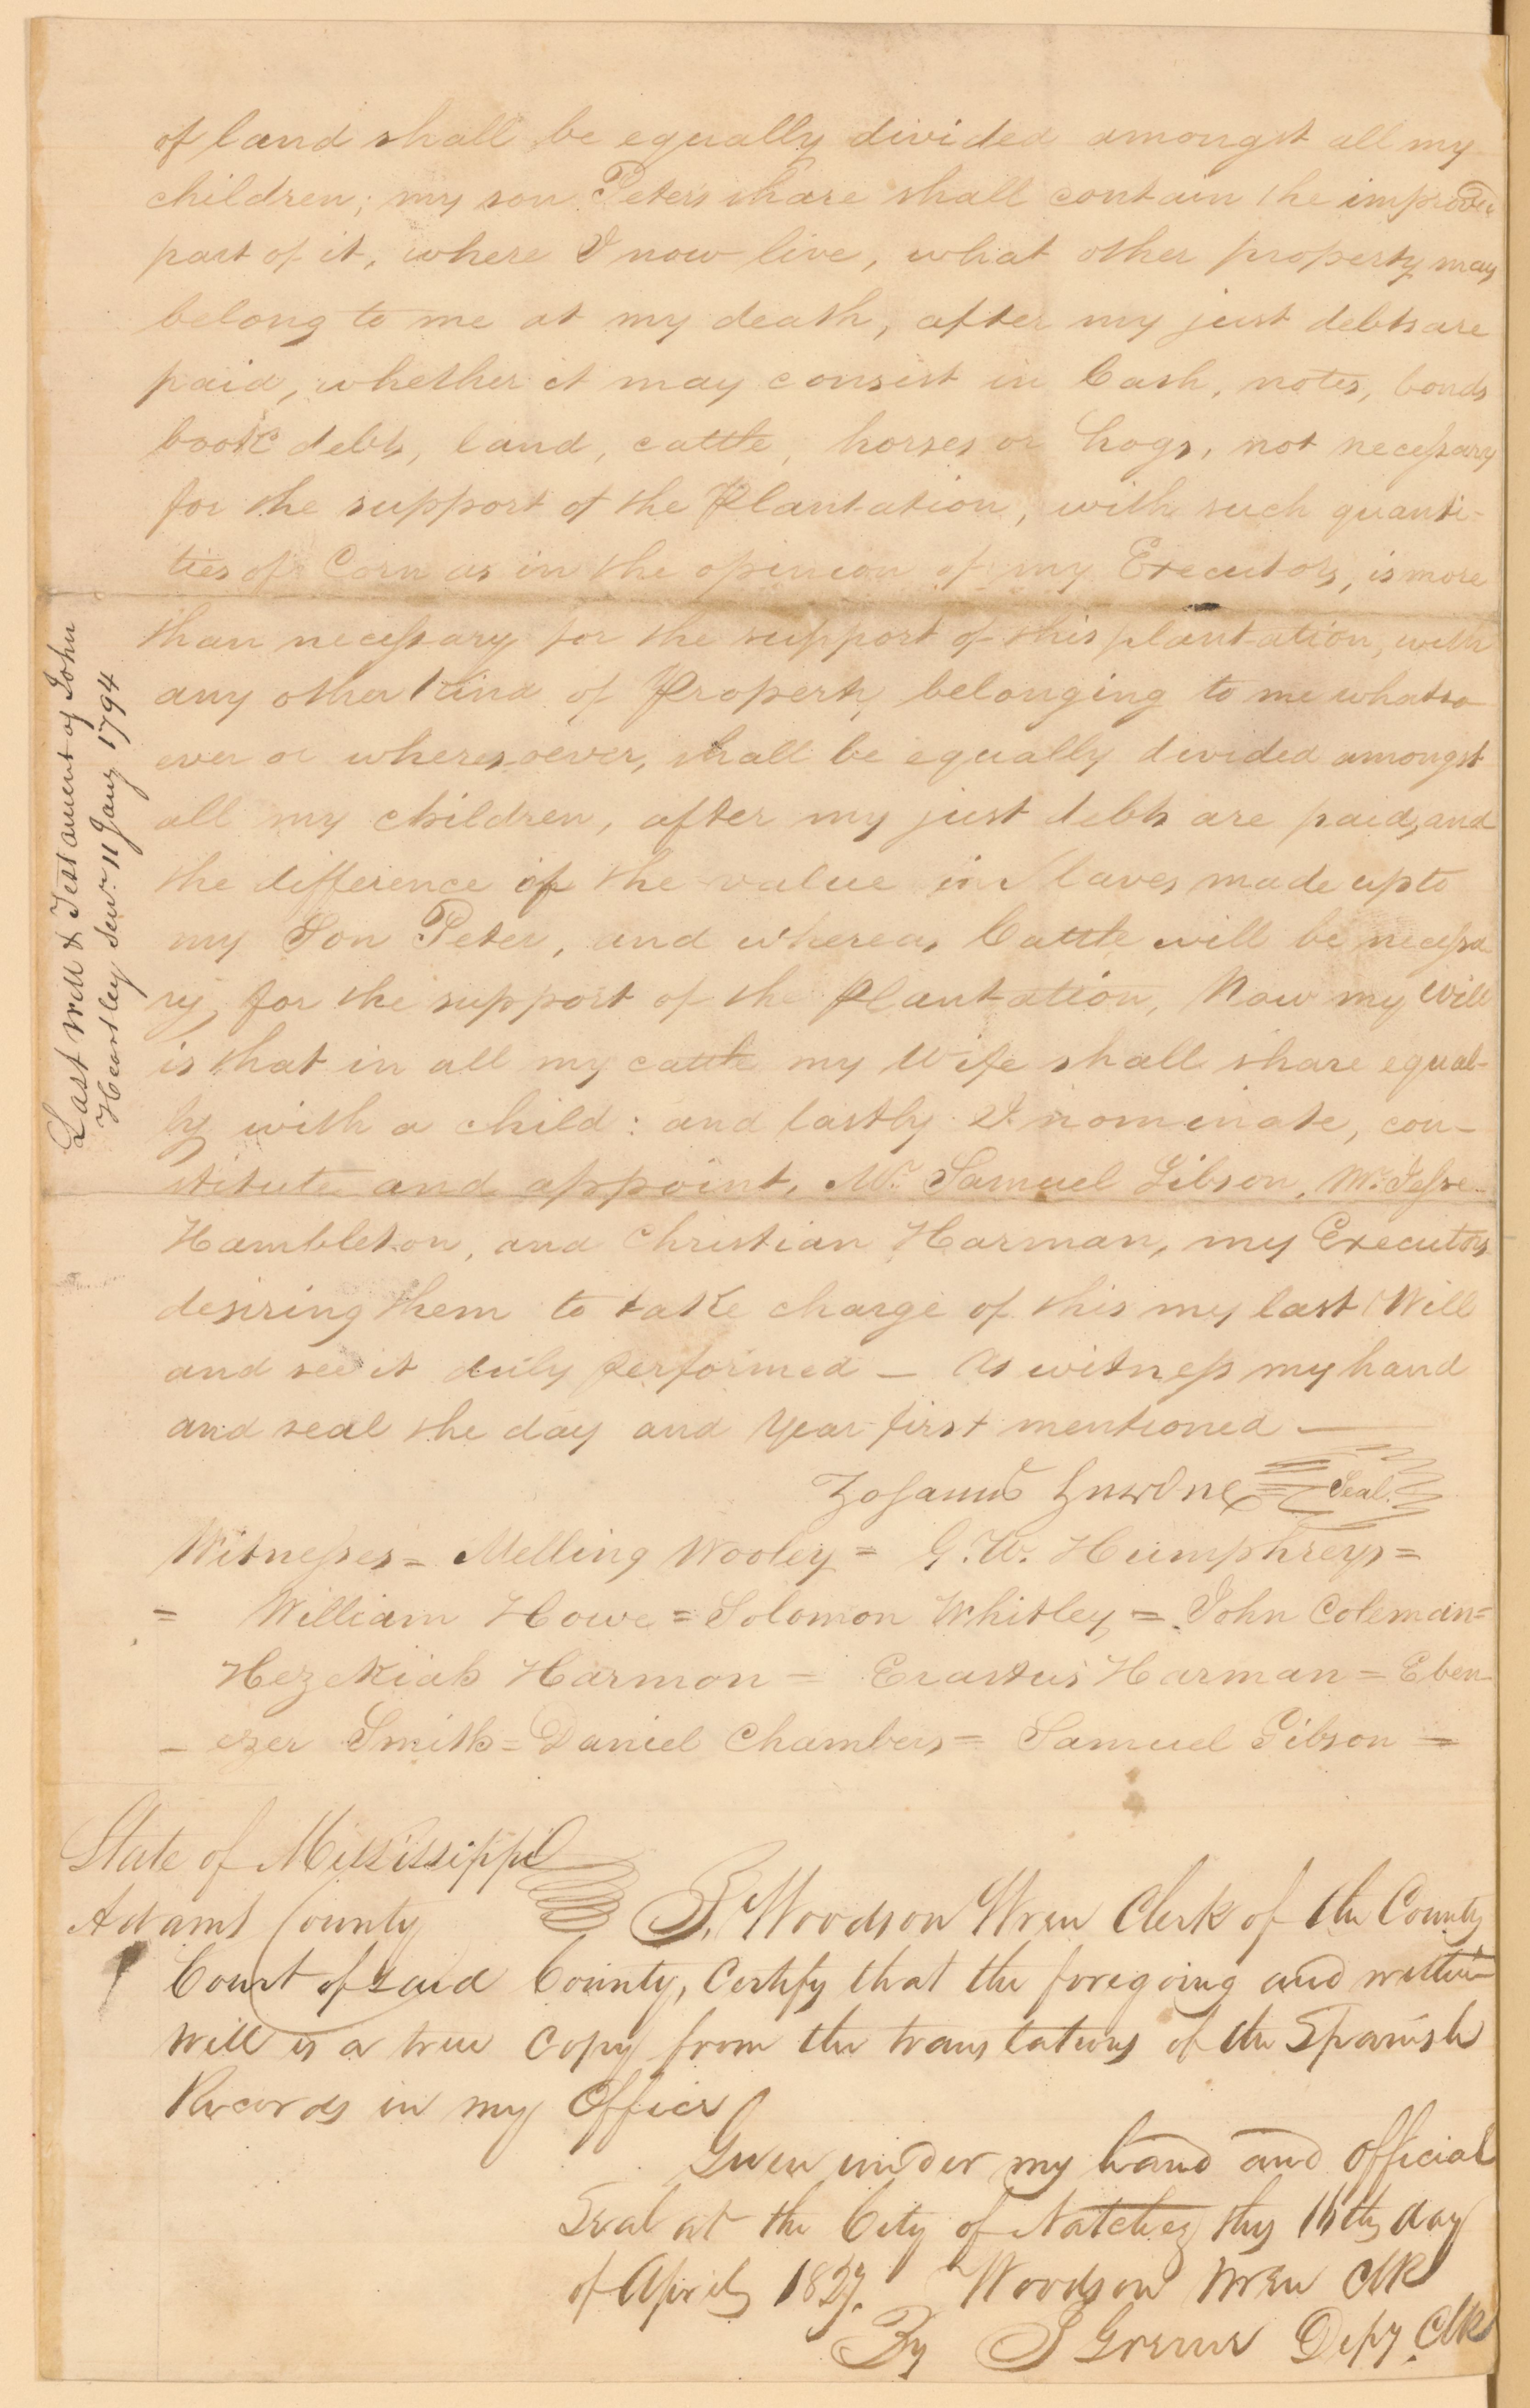 of land shall be equally divided amongst all my
children; my son Peters share shall contain the improved
part of it, where I now live, what other property may
belong to me at my death, after my just debts are
paid, whether it may consist in Cash, notes, bonds
book debts, land, cattle, horses or hogs, not necessary
for the support of the Plantation, with such quanti-
ties of Corn as in the opinion of my Executors, is more
than necessary for the support of this plantation, with
any other kind of Property belonging to me whatso
ever or wheresoever, shall be equally divided amongst
all my children, after my just debts are paid, and
the difference of the value in Slaves made up to
my Son Peter, and whereas Cattle will be necessa
ry for the support of the Plantation, Now my Will
is that in all my cattle my Wife shall share equal-
ly with a child: and lastly I nominate, con-
stitute and appoint, Mr. Samuel Gibson, Mr. Jesse
Hambleton, and Christian Harman, my Executors
desiring them to take charge of this my last Will
and see it duly performed — As witness my hand
and seal the day and Year first mentioned —
Seal.
Witnesses = Melling Wooley = G. W. Humphreys =
= William Howe = Solomon Whitley, = John Coleman =
Hezekiah Harmon = Erastus Harman = Eben-
- ezer Smith = Daniel Chambers = Samuel Gibson =
State of Mississippi
Adams County
I, Woodson Wren Clerk of the County
Court of said County, Certify that the foregoing and written
Will is a true Copy from the translations of the Spanish
Records in my Office
Given under my hand and official
Seal at the City of Natchez this day
of April 1827. Woodson Wren Clk
By Depy. Clk
Last Will & Testament of John
Heartley Senr. 11 Jany 1794